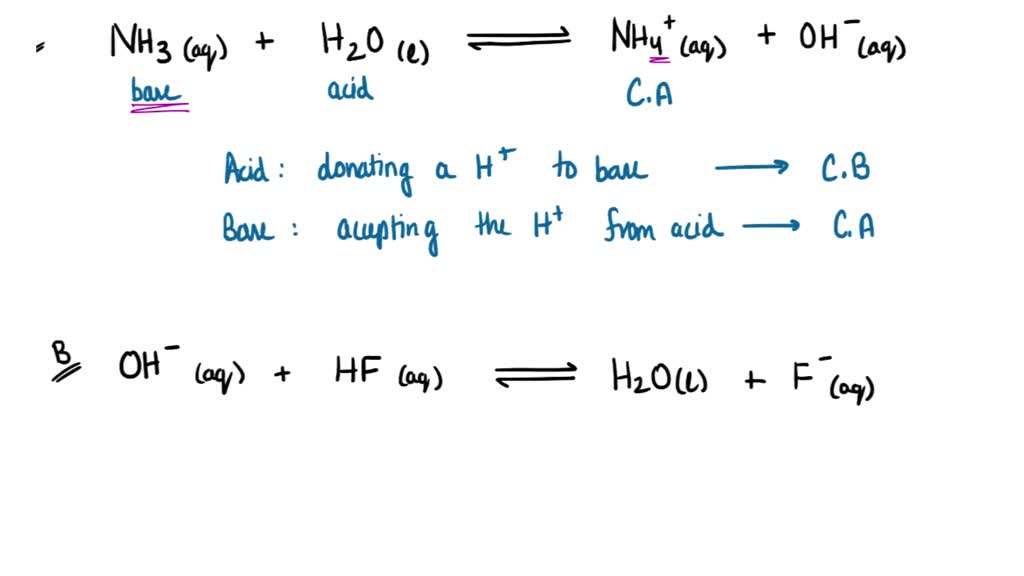 NH3 (aq) + H2O (l) ⇌ NH4+ (aq) + OH- (aq)
base acid C.A
Acid: donating a H+ to base → C.B
Base: accepting the H+ from acid → C.A
B OH- (aq) + HF (aq) ⇌ H2O(l) + F- (aq)